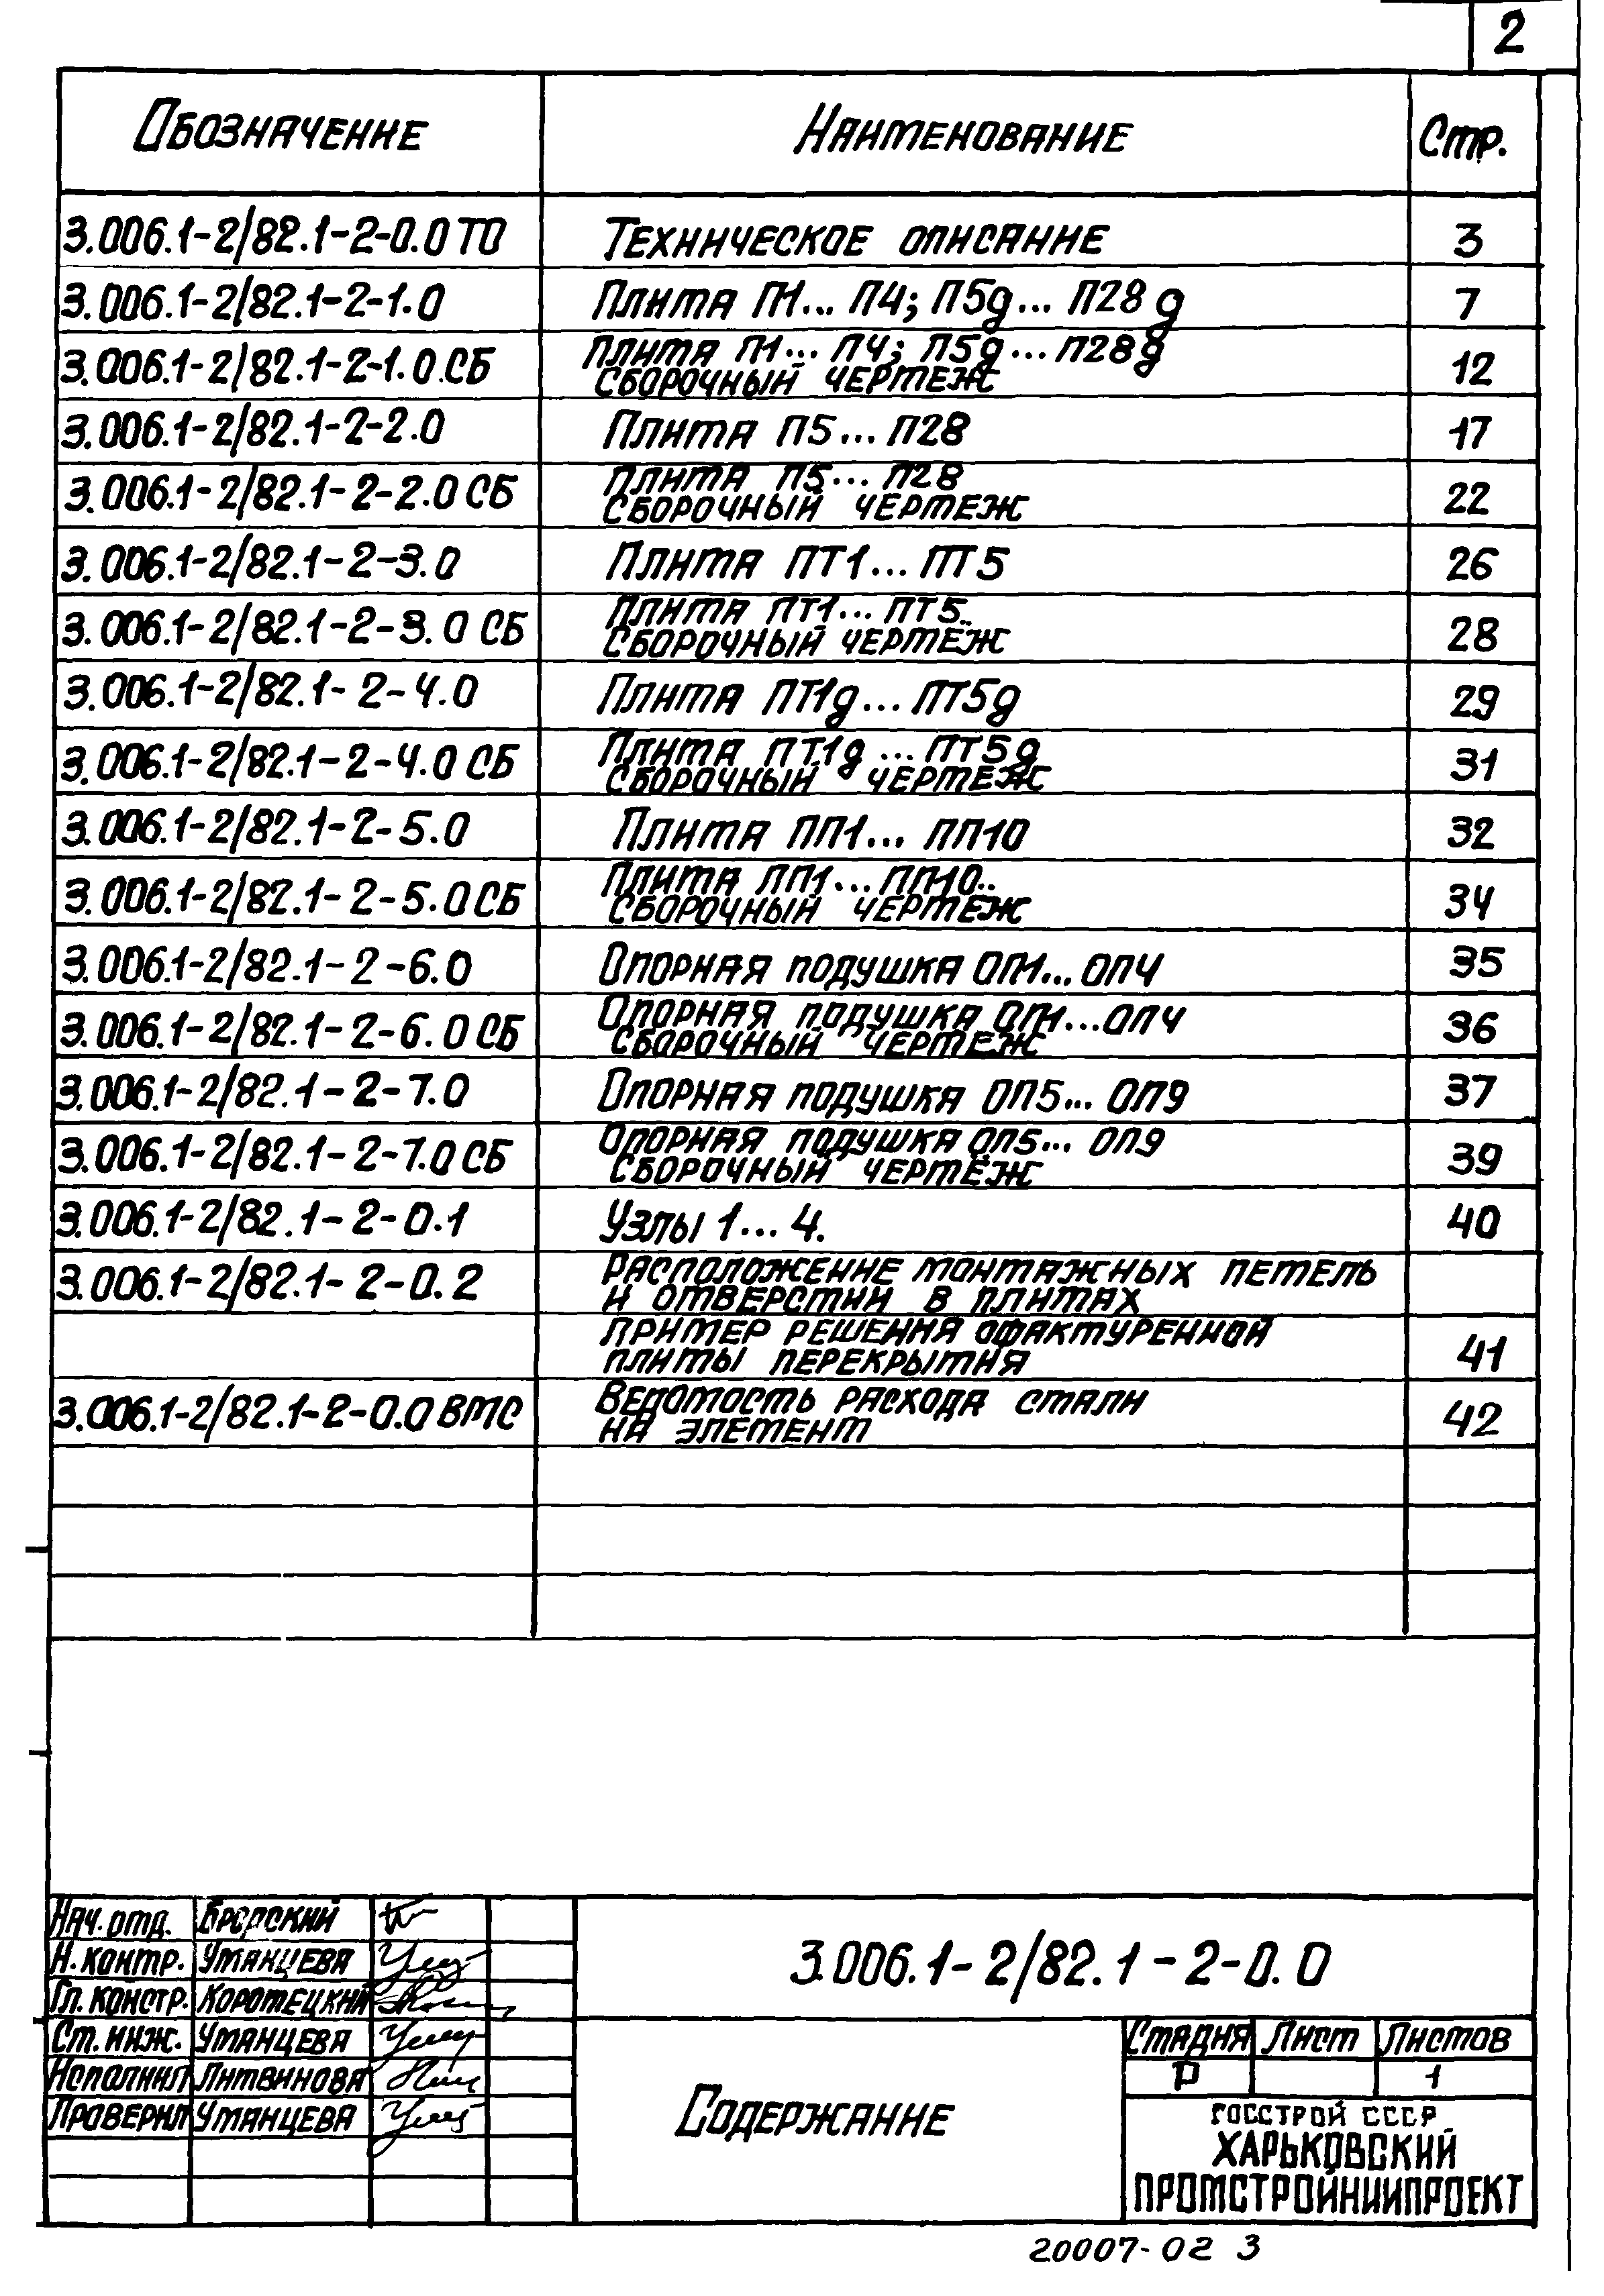 2
Обозначение Наименование Стр.
3.006.1-2/82.1-2-0.0 ТО Техническое описание 3
3.006.1-2/82.1-2-1.0 Плита П1... П4; П5д... П28д 7
3.006.1-2/82.1-2-1.0 СБ Плита П1... П4; П5д... П28д
Сборочный чертеж 12
3.006.1-2/82.1-2-2.0 Плита П5... П28 17
3.006.1-2/82.1-2-2.0 СБ Плита П5... П28
Сборочный чертеж 22
3.006.1-2/82.1-2-3.0 Плита ПТ1... ПТ5 26
3.006.1-2/82.1-2-3.0 СБ Плита ПТ1... ПТ5
Сборочный чертёж 28
3.006.1-2/82.1-2-4.0 Плита ПТ1д... ПТ5д 29
3.006.1-2/82.1-2-4.0 СБ Плита ПТ1д... ПТ5д
Сборочный чертеж 31
3.006.1-2/82.1-2-5.0 Плита ПП1... ПП10 32
3.006.1-2/82.1-2-5.0 СБ Плита ПП1... ПП10
Сборочный чертёж 34
3.006.1-2/82.1-2-6.0 Опорная подушка ОП1... ОП4 35
3.006.1-2/82.1-2-6.0 СБ Опорная подушка ОП1... ОП4
Сборочный чертеж 36
3.006.1-2/82.1-2-7.0 Опорная подушка ОП5... ОП9 37
3.006.1-2/82.1-2-7.0 СБ Опорная подушка ОП5... ОП9
Сборочный чертёж 39
3.006.1-2/82.1-2-0.1 Узлы 1... 4. 40
3.006.1-2/82.1-2-0.2 Расположение монтажных петель
и отверстий в плитах
Пример решения офактуренной
плиты перекрытия 41
3.006.1-2/82.1-2-0.0 ВМС Ведомость расхода стали
на элемент 42
Нач. отд. Бродский
Н. контр. Уманцева
Гл. констр. Коротецкий
Ст. инж. Уманцева
Исполнил Литвинова
Проверил Уманцева
3.006.1-2/82.1-2-0.0
Содержание
Стадия Лист Листов
Р 1
Госстрой СССР
ХАРЬКОВСКИЙ
ПРОМСТРОЙНИИПРОЕКТ
20007-02 3